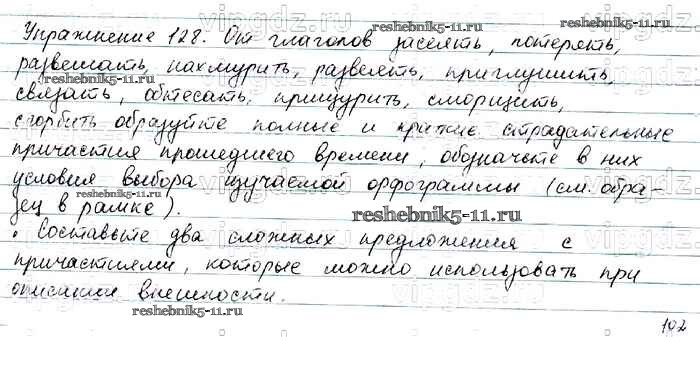 Упражнение 128. От глаголов засеять, потерять,
развешать, нахмурить, развеять, приглушить,
связать, обтесать, прищурить, сморщить,
сгорбить образуйте полные и краткие страдательные
причастия прошедшего времени, обозначьте в них
условия выбора изучаемой орфограммы (см. обра-
зец в рамке).
• Составьте два сложных предложения с
причастиями, которые можно использовать при
описании внешности.
102
reshebnik5-11.ru
reshebnik5-11.ru
reshebnik5-11.ru
reshebnik5-11.ru
reshebnik5-11.ru
vipgdz.ru